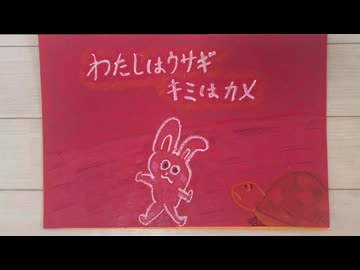 わたしはウサギ
キミはカメ